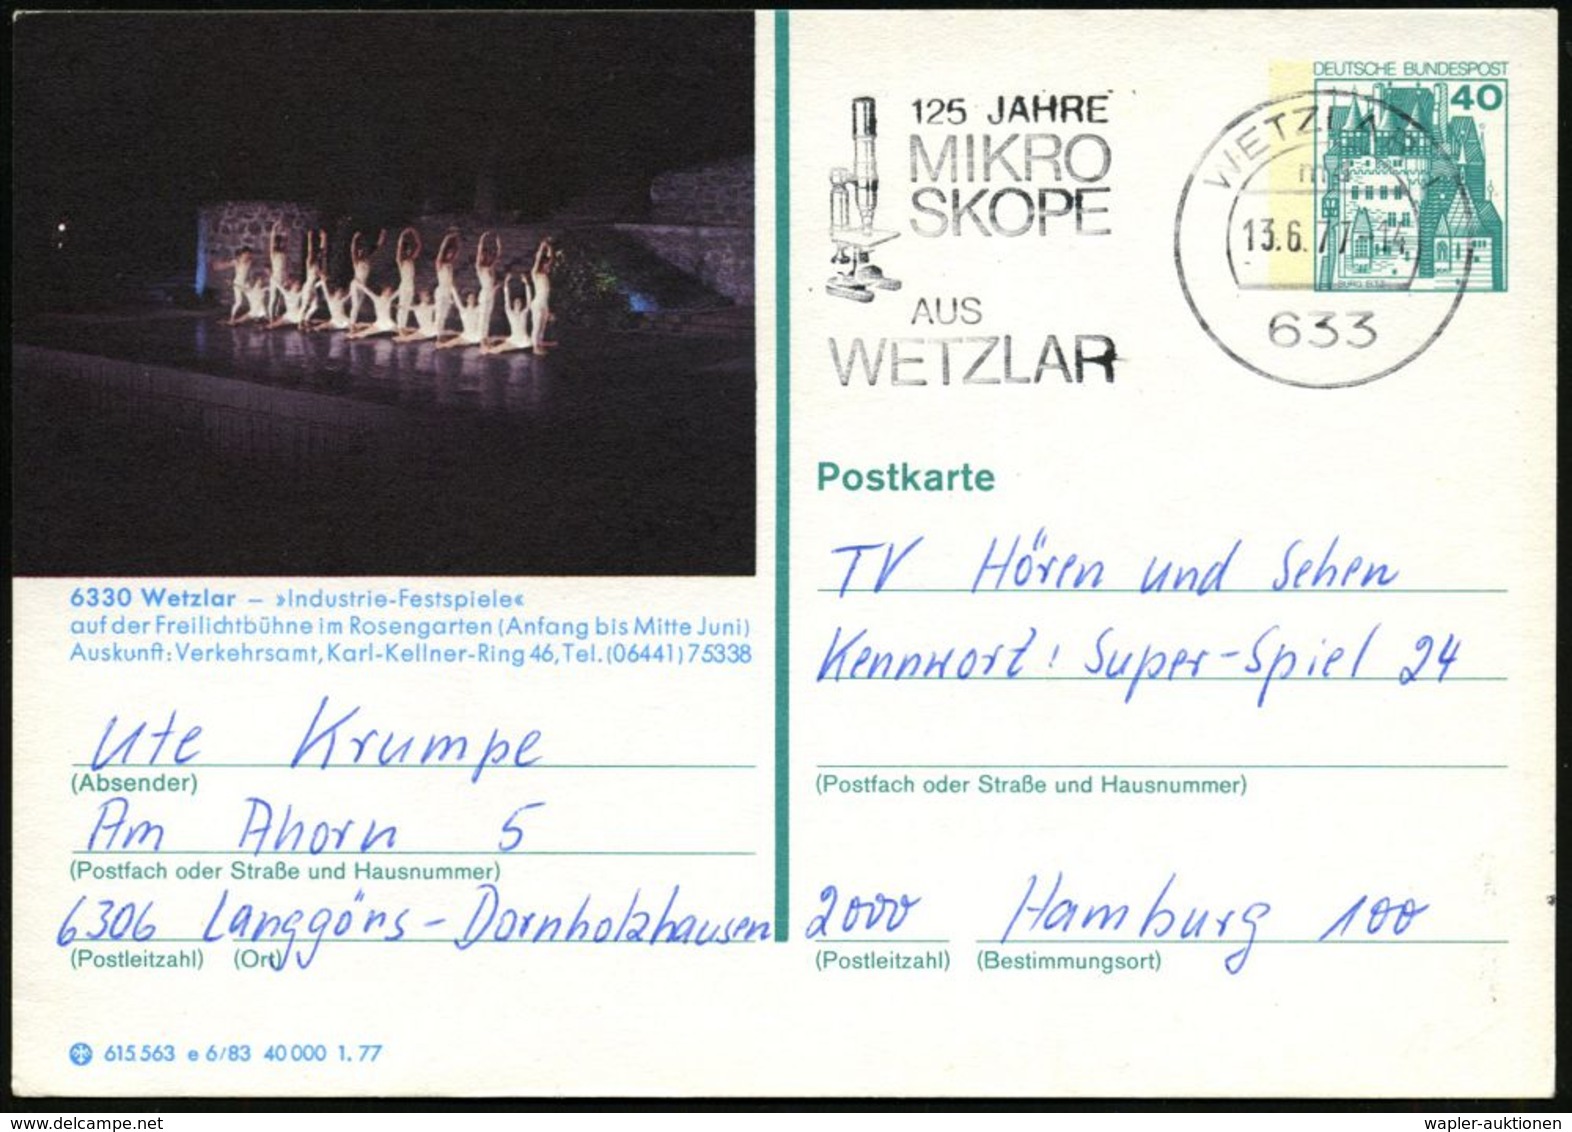 DEUTSCHE BUNDESPOST
40
125 JAHRE
MIKRO
SKOPE
AUS
WETZLAR
WETZLAR 1
13.6.77-14
633
BURG ELTZ
6330 Wetzlar – »Industrie-Festspiele«
auf der Freilichtbühne im Rosengarten (Anfang bis Mitte Juni)
Auskunft: Verkehrsamt, Karl-Kellner-Ring 46, Tel. (06441) 75338
Ute Krumpe
(Absender)
Am Ahorn 5
(Postfach oder Straße und Hausnummer)
6306 Langgöns-Dornholzhausen
(Postleitzahl) (Ort)
615.563 e 6/83 40 000 1. 77
Postkarte
TV Hören und Sehen
Kennwort: Super-Spiel 24
(Postfach oder Straße und Hausnummer)
2000 Hamburg 100
(Postleitzahl) (Bestimmungsort)
delcampe.net
wapler-auktionen